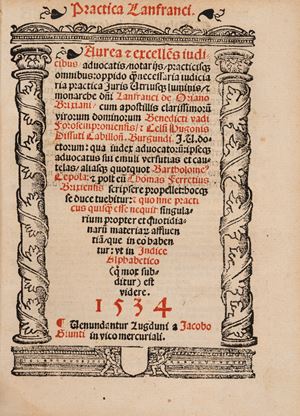 Practica Lanfranci.
Aurea & excellẽs iudi
cibus aduocatis/notarijs/practicisqʒ
omnibus:oppido q̃necessaria iudicia
ria practica Juris Utriusqʒ luminis/
monarche dñi Lanfranci de Oriano
Brixiani/ cum apostillis clarissimorũ
virorum:dominorum Benedicti vadi
Forosempronensis/ & Celsi Hugonis
Dissuti Cabilloñ. Burgundi. J.U.do
ctorum: qua iudex aduocatorũ:ipseqʒ
aduocatus sui emuli versutias et cau
telas/aliasqʒ quoquot Bartholome⁹
Cepola: & post eũ Thomas Ferratius
Brixiensis scripsere propellet:hocqʒ
se duce tuebitur: & quo sine practi
cus quisqʒ esse nequit: singula
rium propter et quotidia
narũ materiaꝝ affluen
tiã/que in eo haben
tur:vt in Indice
Alphabetico
(q̃ mox sub
ditur) est
videre.
1534
Uenundantur Lugduni a Jacobo
Giunti in vico mercuriali.